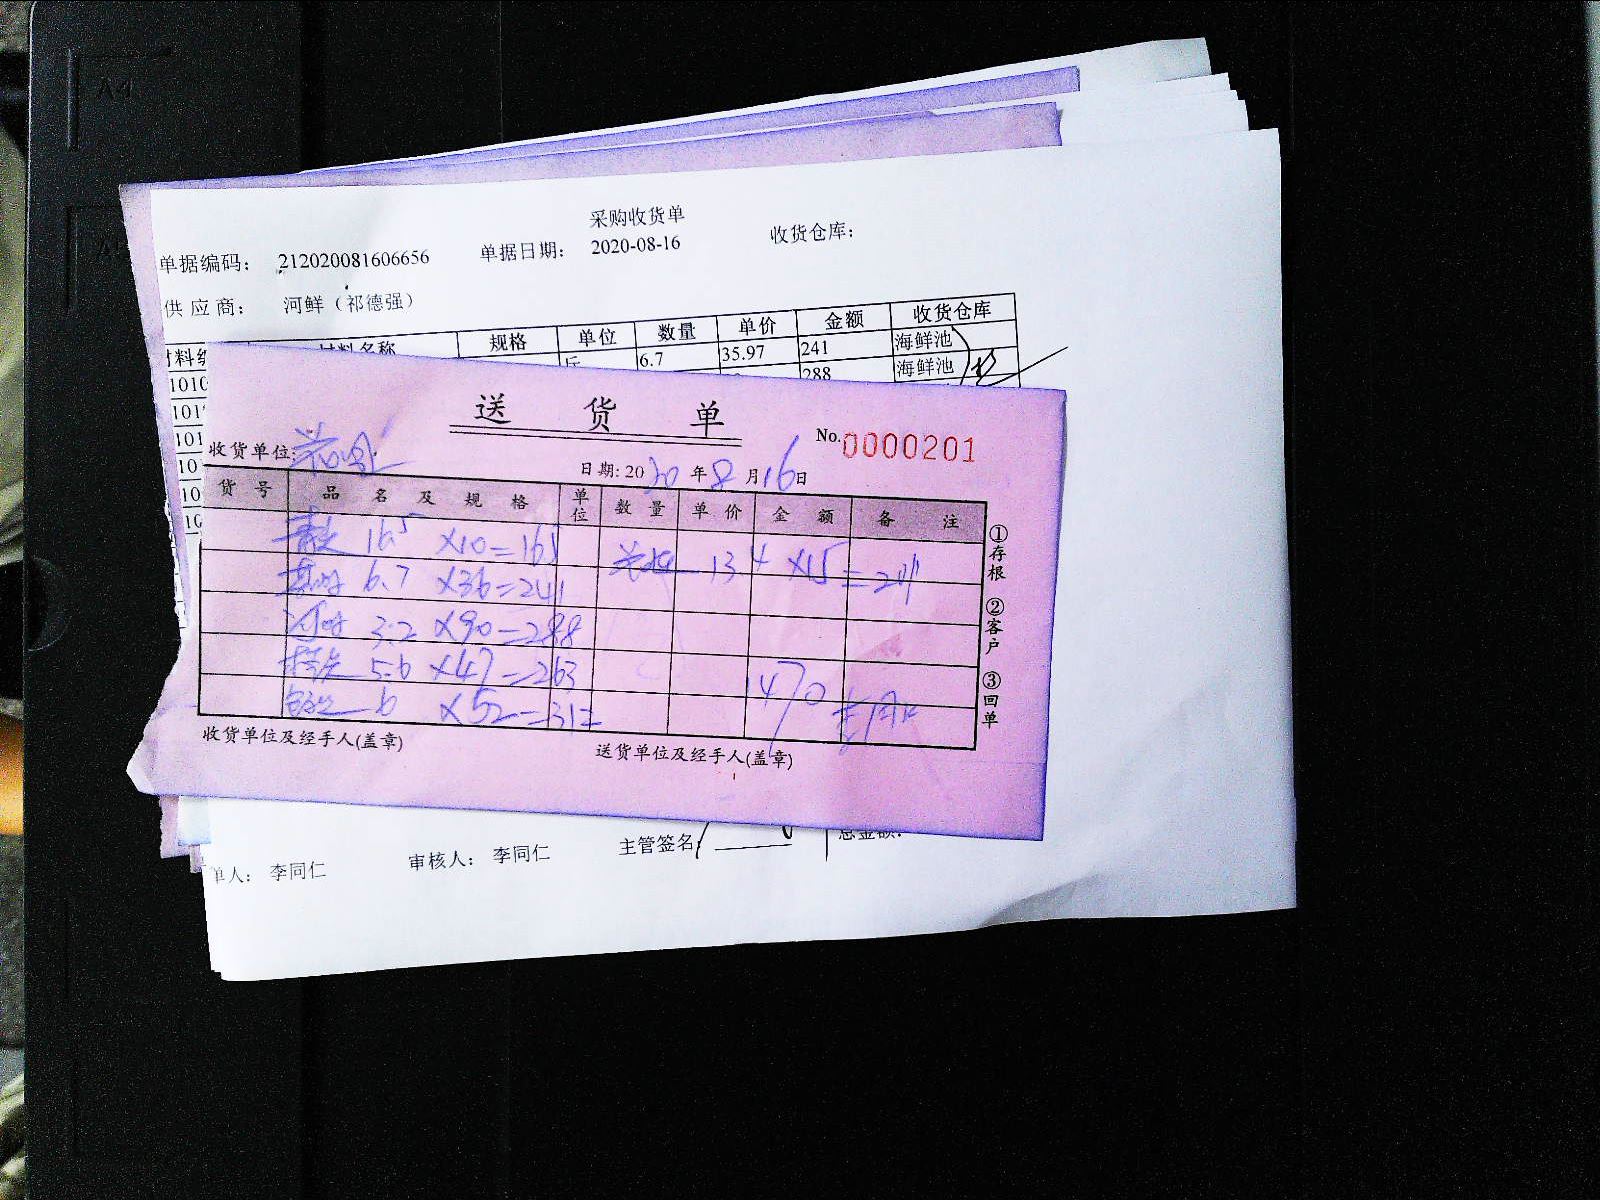 采购收货单
单据编码： 212020081606656 单据日期： 2020-08-16 收货仓库：
供 应 商： 河鲜（祁德强）
材料名称 规格 单位 数量 单价 金额 收货仓库
斤 6.7 35.97 241 海鲜池
1010 288 海鲜池
101
101
10
10
10
送 货 单
No.0000201
收货单位:
日期: 2020 年 8 月 16 日
货 号 品 名 及 规 格 单位 数 量 单 价 金 额 备 注
16.5 ×10=165
13.4 ×15=201
6.7 ×36=241
3.2 ×90=288
5.6 ×47=263
6 ×52=312
1470
①存根 ②客户 ③回单
收货单位及经手人(盖章) 送货单位及经手人(盖章)
单人： 李同仁 审核人： 李同仁 主管签名: 总金额: